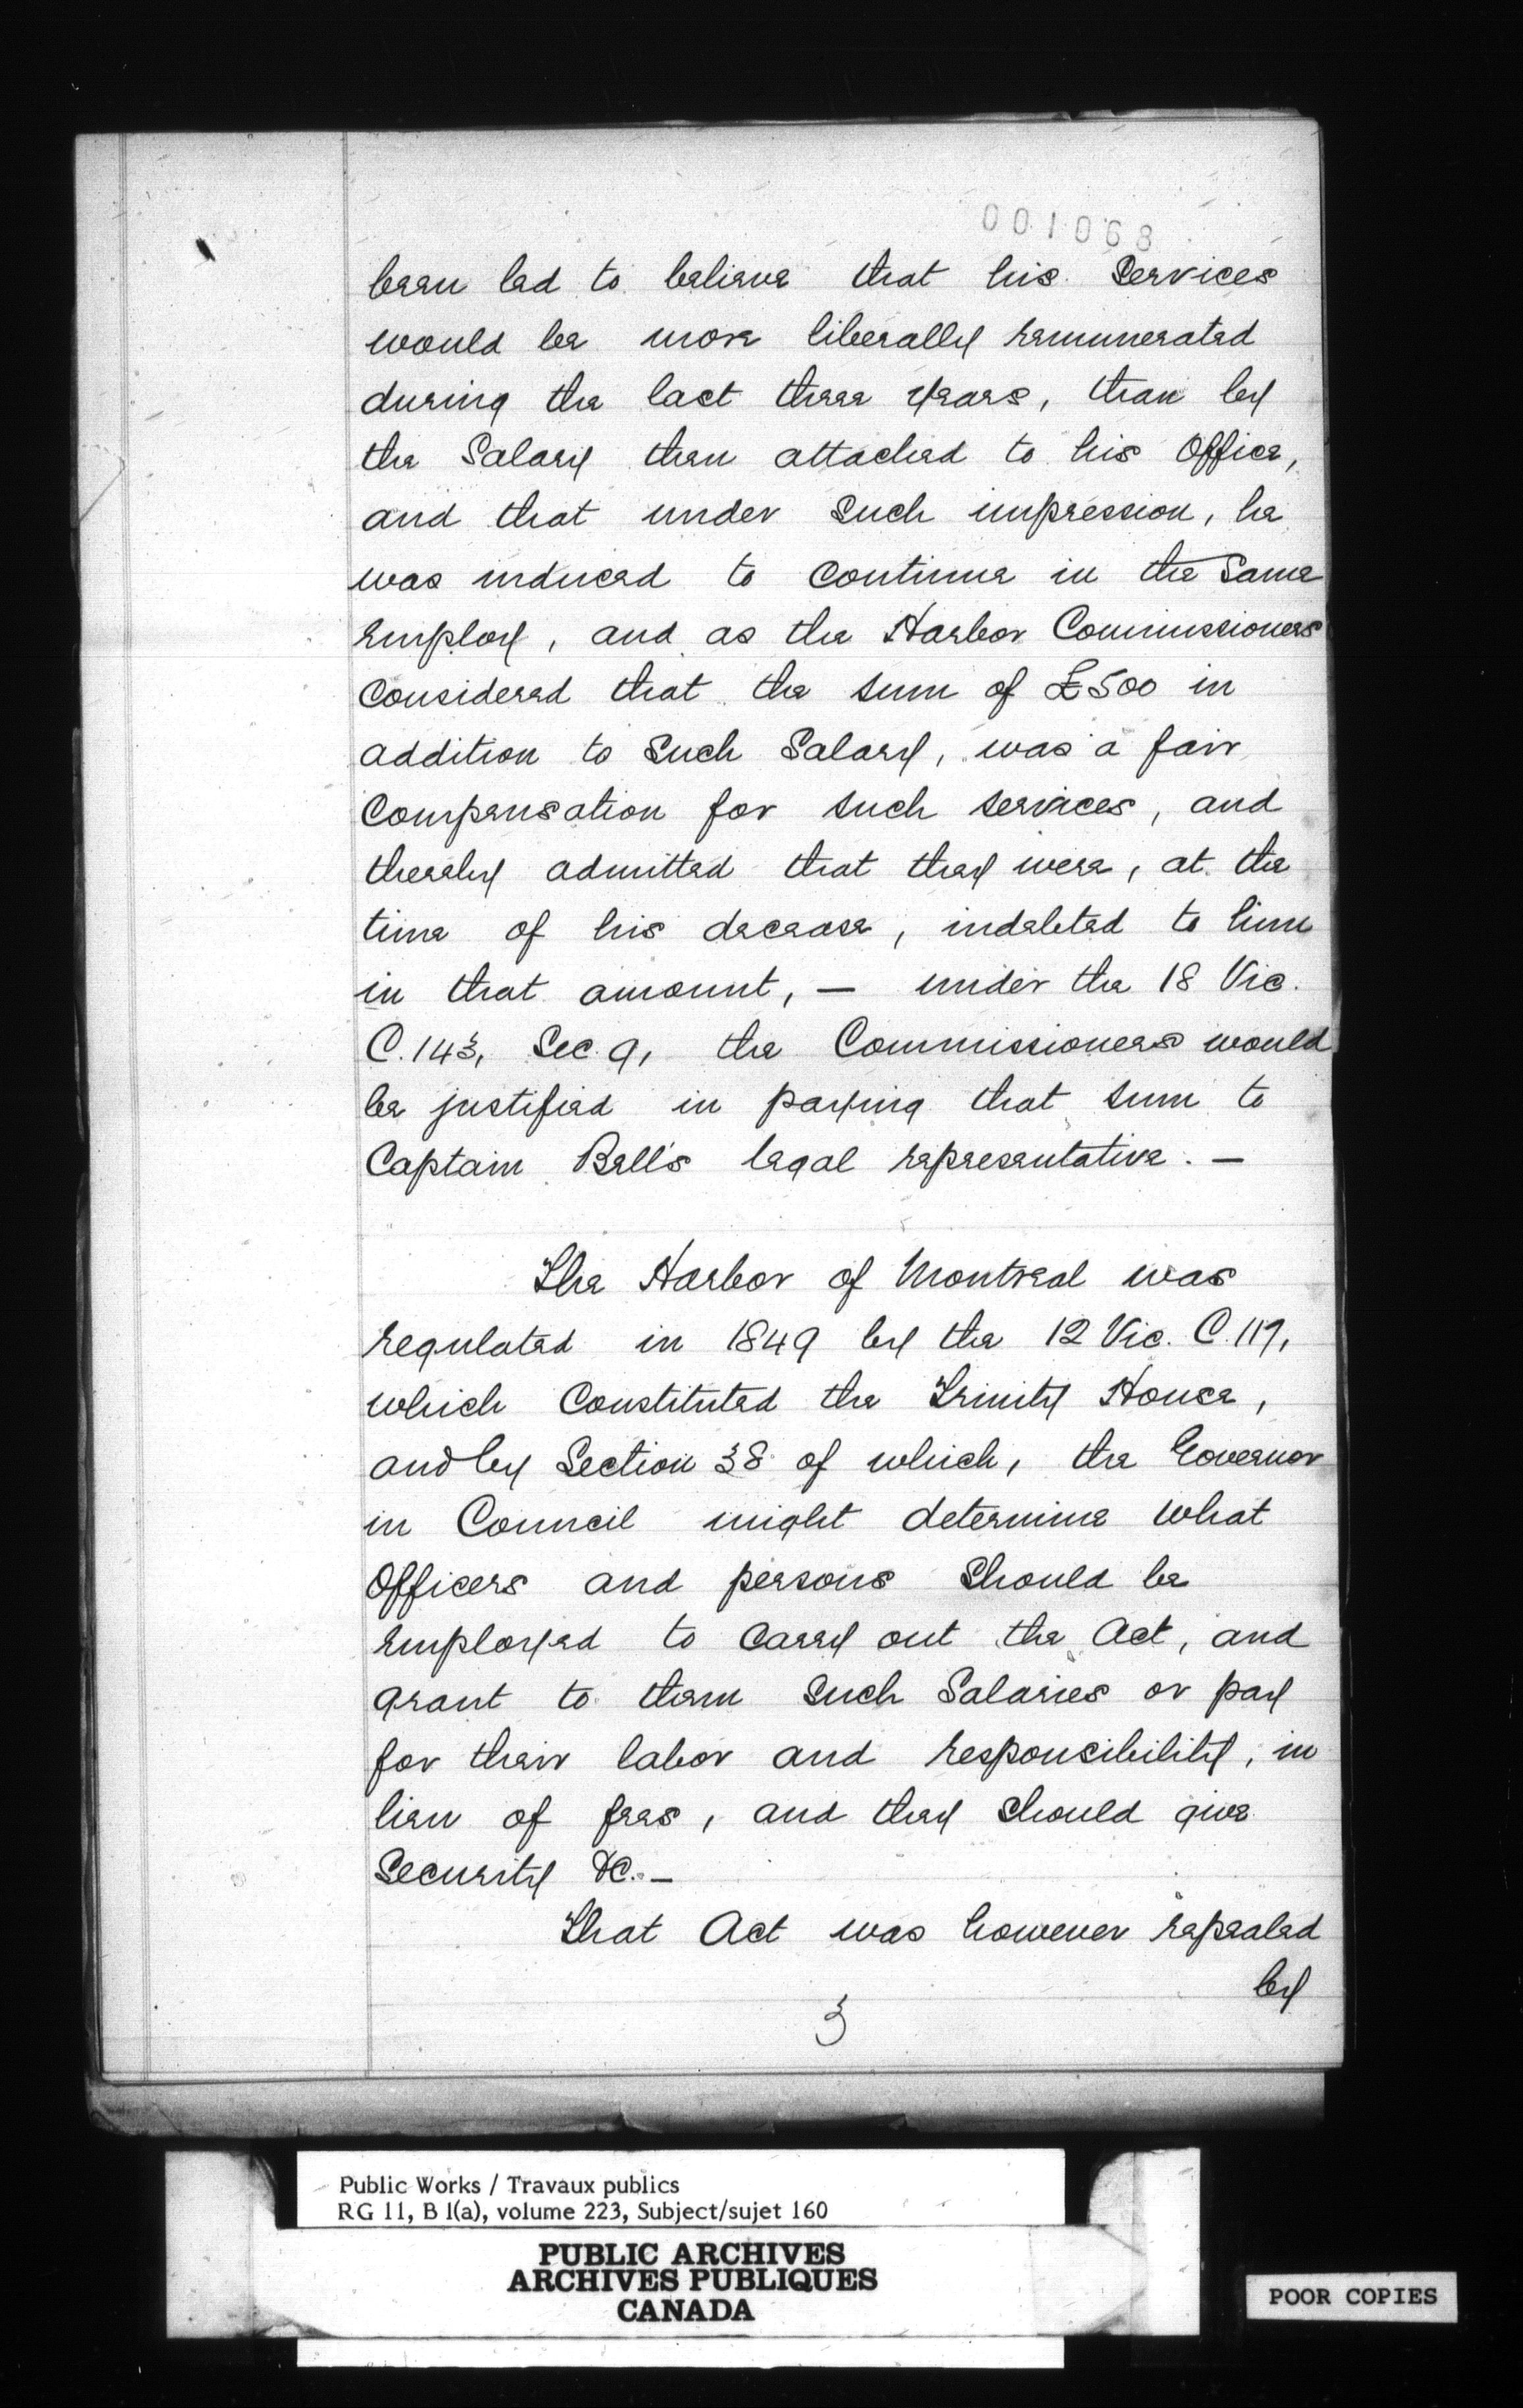 001068
been led to believe that his Services
would be more liberally remunerated
during the last three years, than by
the Salary then attached to his Office,
and that under Such impression, he
was induced to Continue in the Same
employ, and as the Harbor Commissioners
Considered that the sum of £500 in
addition to Such Salary, was a fair
Compensation for such services, and
thereby admitted that they were, at the
time of his decease, indebted to him
in that amount, — under the 18 Vic.
C. 143, Sec. 9, the Commissioners would
be justified in paying that sum to
Captain Bell's legal representative. —
The Harbor of Montreal was
regulated in 1849 by the 12 Vic. C. 117,
which Constituted the Trinity House,
and by Section 38 of which, the Governor
in Council might determine what
Officers and persons Should be
employed to Carry out the Act, and
grant to them Such Salaries or pay
for their labor and responsibility, in
lieu of fees, and they Should give
Security &C. —
That Act was however repealed
by
3
Public Works / Travaux publics
RG 11, B 1(a), volume 223, Subject/sujet 160
PUBLIC ARCHIVES
ARCHIVES PUBLIQUES
CANADA
POOR COPIES